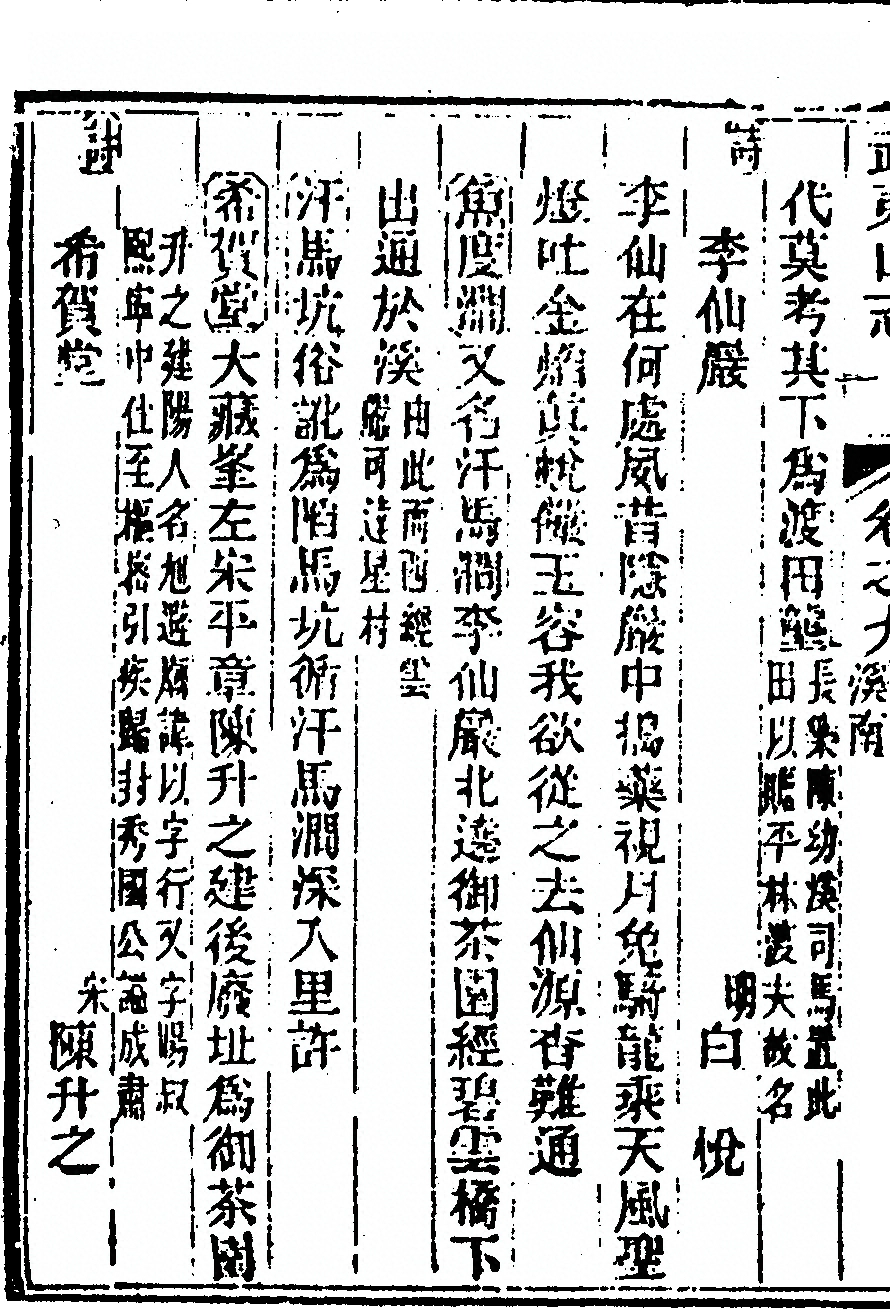 武夷山志 一 卷之九 溪南
代莫考其下為渡田壟 長樂陳幼溪司馬置此田以贍平林渡夫故名
詩 李仙巖 明 白 悅
李仙在何處夙昔隱巖中搗藥視月兔騎龍乘天風聖
燈吐金焰真 儼玉容我欲從之去仙源杳難通
魚度澗又名汗馬澗李仙巖北遶御茶園經碧雲橋下
出通於溪 由此而西經雲巖可達星村
汗馬坑俗訛為陷馬坑循汗馬澗深入里許
希賀堂大藏峯左宋平章陳升之建後廢址為御茶園
升之建陽人名旭避廟諱以字行又字暘叔熙寧中仕至樞密引疾歸封秀國公諡成肅
詩 希賀堂 宋 陳升之